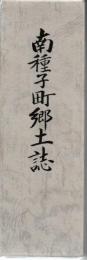 南種子町郷土誌